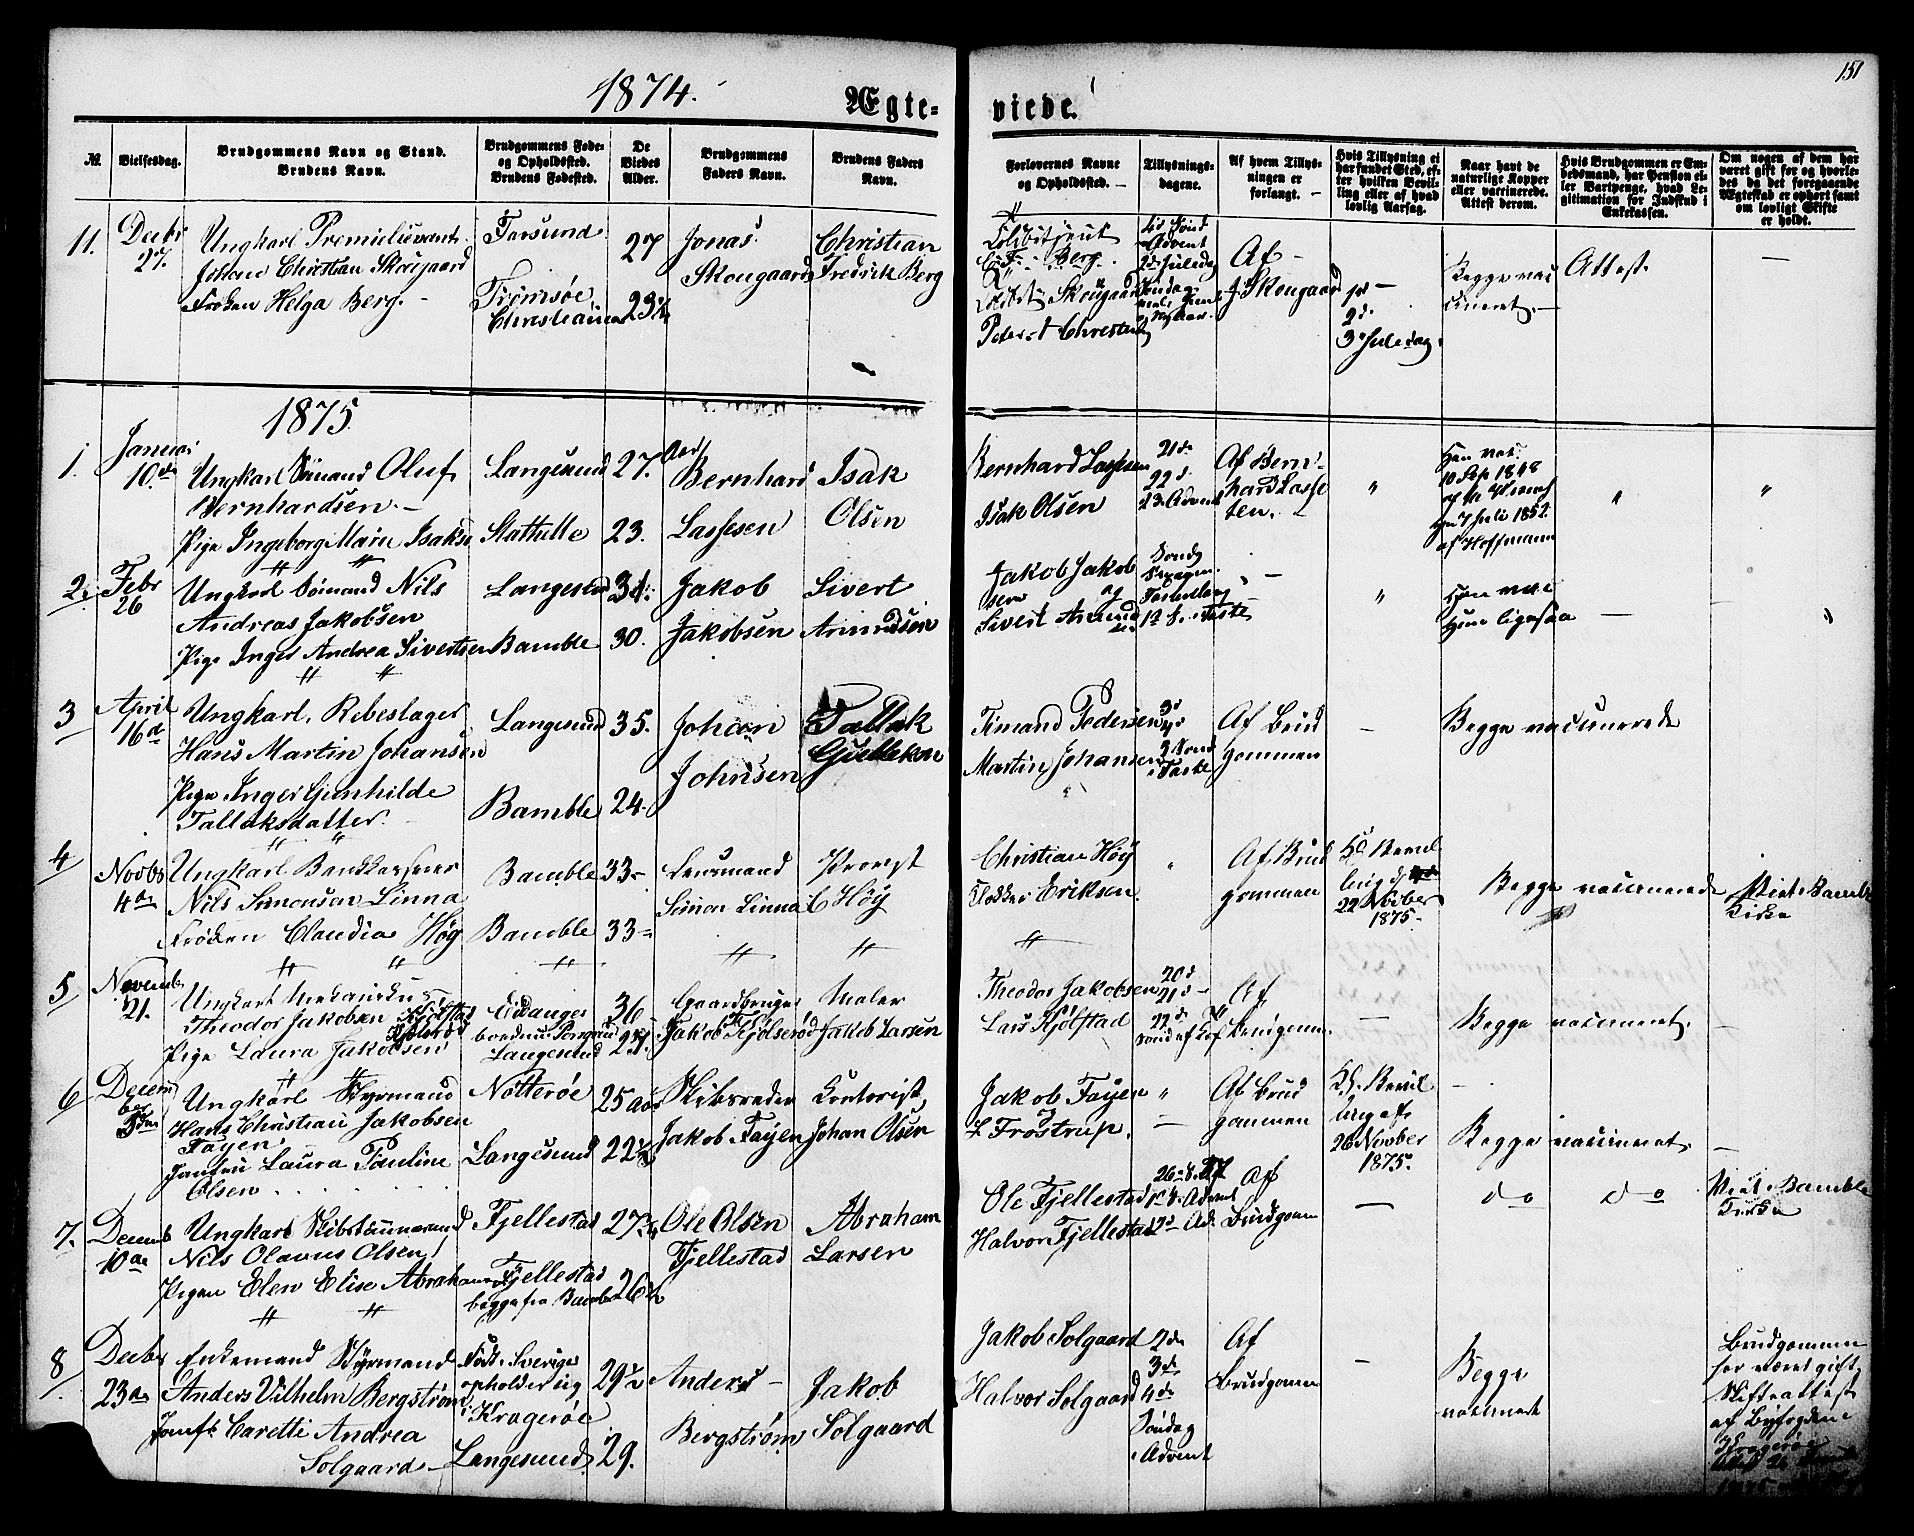 151
1874.
Ægte-
viede.
№
Vielsesdag.
Brudgommens Navn og Stand.
Brudens Navn.
Brudgommens Føde-
og Opholdsted.
Brudens Fødested.
De
Viedes
Alder.
Brudgommens
Faders Navn.
Brudens Faders
Navn.
Forlovernes Navne
og Opholdsted.
Tillysnings-
dagene.
Af hvem Tillys-
ningen er
forlangt.
Hvis Tillysning ei
har fundet Sted, ef-
ter hvilken Bevil-
ling eller af hvad
lovlig Aarsag.
Naar havt de
naturlige Kopper
eller vaccinerede.
Attest derom.
Hvis Brudgommen er Em-
bedsmand, har Pension el-
ler Vartpenge, hvad Le-
gitimation for Indskud i
Enkekassen.
Om nogen af dem har
været gift før og hvorle-
des da det foregaaende
Ægteskab er ophørt samt
om lovligt Skifte
er holdt.
11. Decbr 27.
Ungkarl Premieluvant
Johan Christian Skougaard
Frøken Helga Berg.
Farsund
Tromsøe
Christiania
27
23½
Jonas
Skougaard
Christian
Fredrik Berg
Berg.
Skougaard
Peter Christian
Af
J Skougaard
2d
3 Juledag.
Begge vac
cineret.
Attest.
1875.
1. Januar 10de
Ungkarl Sømand Oluf
Bernhardsen
Pige Ingeborg Marie Isaksen
Langesund
Stathelle
27. Aar
23.
Bernhard
Lassesen
Isak
Olsen
Bernhard Lassesen
Isak Olsen
21de
22d
23 Advent
Af Bern-
hard Lasse
sen.
Han vac.
10 Sep 1848
7 Juli 1852
af Hoffmann
2. Febr 26
Ungkarl Sømand Nils
Andreas Jakobsen
Pige Inger Andrea Sivertsen
Langesund
Bamble
34.
30.
Jakob
Jakobsen
Sivert
Amundsen
Jakob Jakob
sen og
Sivert Amund
sen
Han vac
Hun ligesaa
3 April 16d
Ungkarl, Rebeslager
Hans Martin Johansen
Pige Inger Gunhilde
Tallaksdatter.
Langesund
Bamble
35.
24.
Johan
Johnsen
Tallak
Gulleksen
Timand Pedersen
Martin Johansen
3 Sønd
i Faste
Af Brud
gommen
Begge vaccinerede
4 Novbr 4de
Ungkarl Bankkasserer
Nils Simonsen Linna
Frøken Claudia Høy
Bamble
Bamble
33
33
Lensmand
Simon Linna
Provst
C Høy
Christian Høy
Klokker Eriksen.
Af Brud
gommen
Kgl Bevil
ling d.
22 Novber
1875.
Begge vaccinerede
Viet i Bamble
Kirke
5 Novemb 21.
Ungkarl
Theodor Jakobsen Kjølstad
Pige Laura Jakobsen
Eidanger
Langesund
36
Gaardbruger
Maler
Jakob Larsen
Theodor Jakobsen
Lars Kjølstad
20d
21d
22de
Af
Brudgommen.
Begge vaccineret.
6 Decem
ber 3die
Ungkarl Styrmand
Hans Christian Jakobsen
Fayen
Jomfru Laura Pauline
Olsen
Nøtterøe
Langesund
25 aar
22½
Skibsreder
Jakob Fayen
Kontorist,
Johan Olsen
Jakob Fayen
L Frostrup.
Af Brud
gommen
Kgl. Bevil
ling af
26 Novber
1875.
Begge vaccineret
7. Decemb 10de
Ungkarl Skibstømmermand
Nils Olavus Olsen
Pigen Elen Elise Abrahamsen
Fjellestad
Fjellestad
begge fra Bamble
27½
26½
Ole Olsen
Fjellestad
Abraham
Larsen
Ole Fjellestad
Halvor Fjellestad
Af
Brudgom
do
do
Viet i Bamble
Kirke
8 Decbr 23de
Enkemand Styrmand
Anders Vilhelm Bergstrøm
Jomfr Caretti Andrea
Solgaard
Født i Sverige
opholder sig
i Kragerøe
Langesund
29½
29.
Anders
Bergstrøm
Jakob
Solgaard
Jakob Solgaard
Halvor Solgaard
2de
3de
4de
Søndag
i Advent
Af
Brudgom
Begge
vaccineret
Brudgommen
har været gift,
Skifteattest
af Byfogden i
Kragerøe